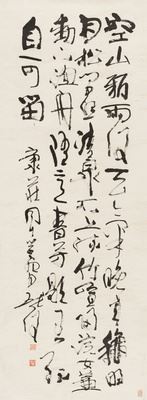 空山新雨後天氣晚來秋明
月松間照清泉石上流竹喧歸浣女蓮
動下漁舟隨意春芳歇王孫
自可留
康莊同